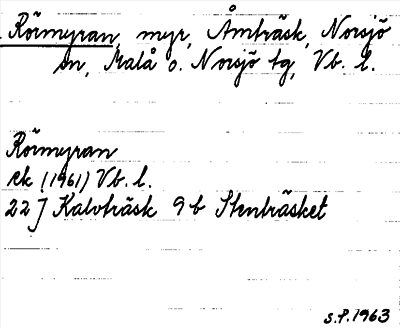 Rörmyran, myr, Åmträsk, Norsjö
sn, Malå o. Norsjö tg, Vb. l.
Rörmyran
ek (1961) Vb. l.
22J Kalvträsk 9b Stenträsket
S.P. 1963